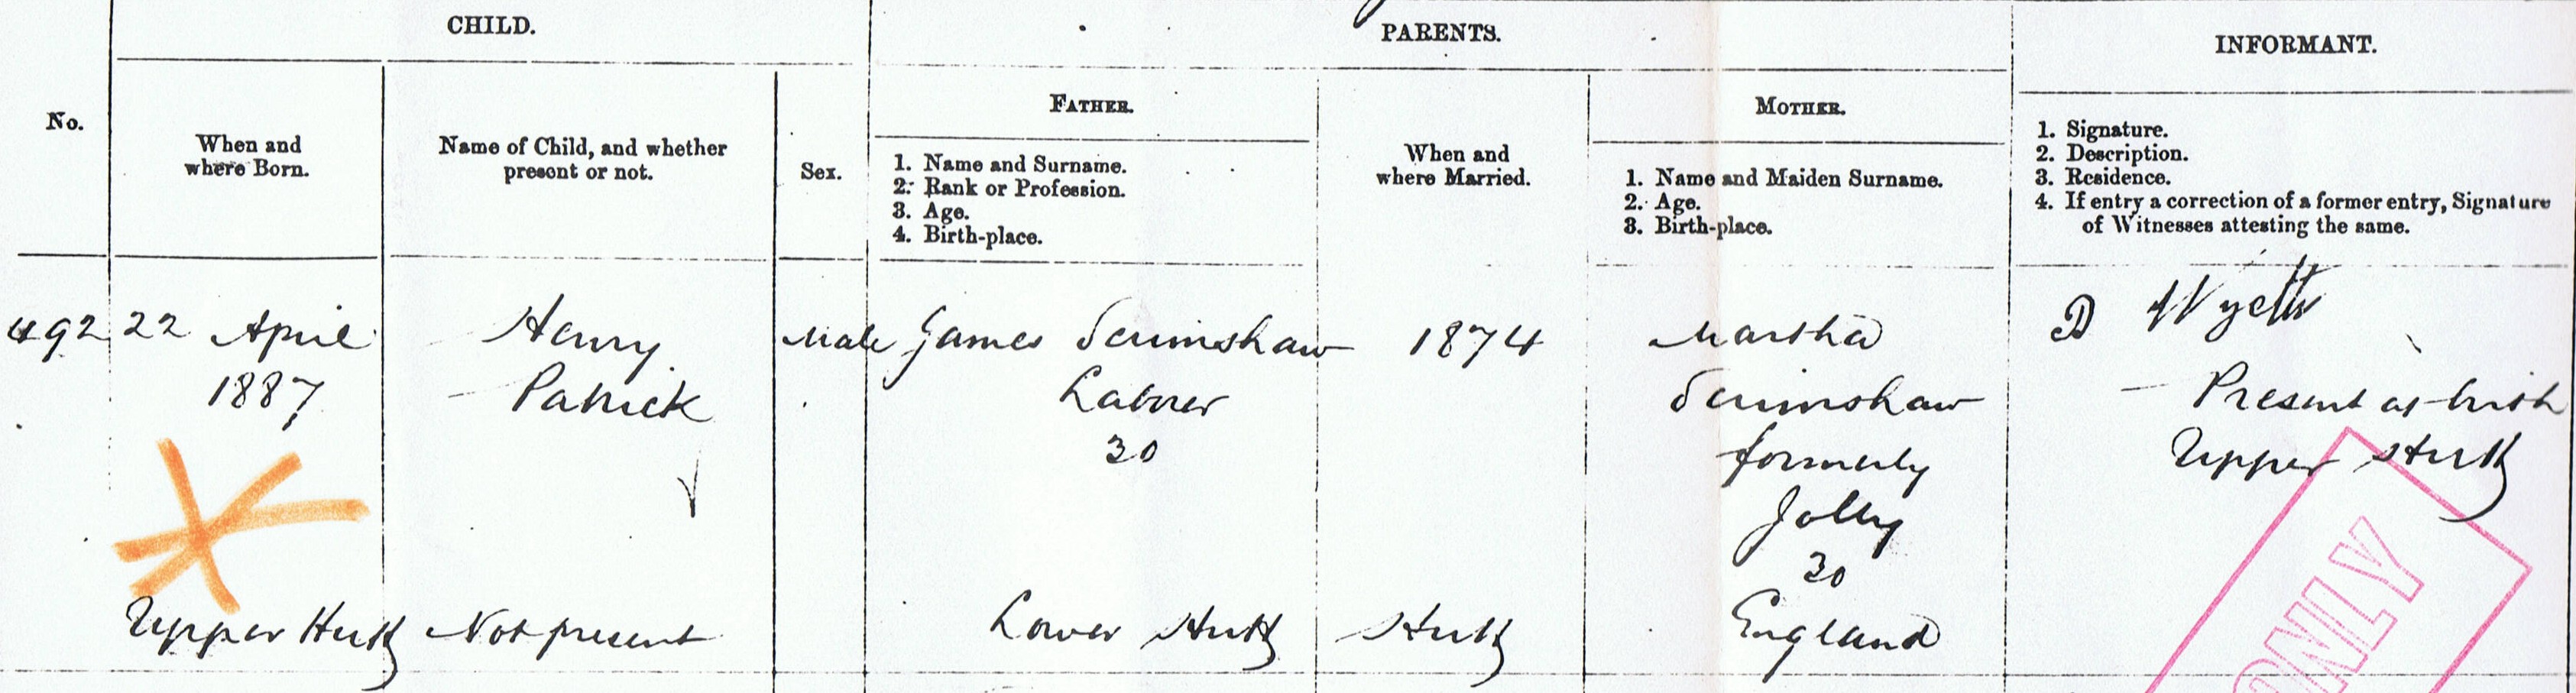 CHILD.
PARENTS.
INFORMANT.
No.
When and
where Born.
Name of Child, and whether
present or not.
Sex.
FATHER.
1. Name and Surname.
2. Rank or Profession.
3. Age.
4. Birth-place.
When and
where Married.
MOTHER.
1. Name and Maiden Surname.
2. Age.
3. Birth-place.
1. Signature.
2. Description.
3. Residence.
4. If entry a correction of a former entry, Signature
of Witnesses attesting the same.
492
22 April
1887
Upper Hutt
Henry
Patrick
Not present
Male
James Scrimshaw
Laborer
30
Lower Hutt
1874
Hutt
Martha
Scrimshaw
formerly
Jolly
30
England
D Wyeth
Present at birth
Upper Hutt
ONLY